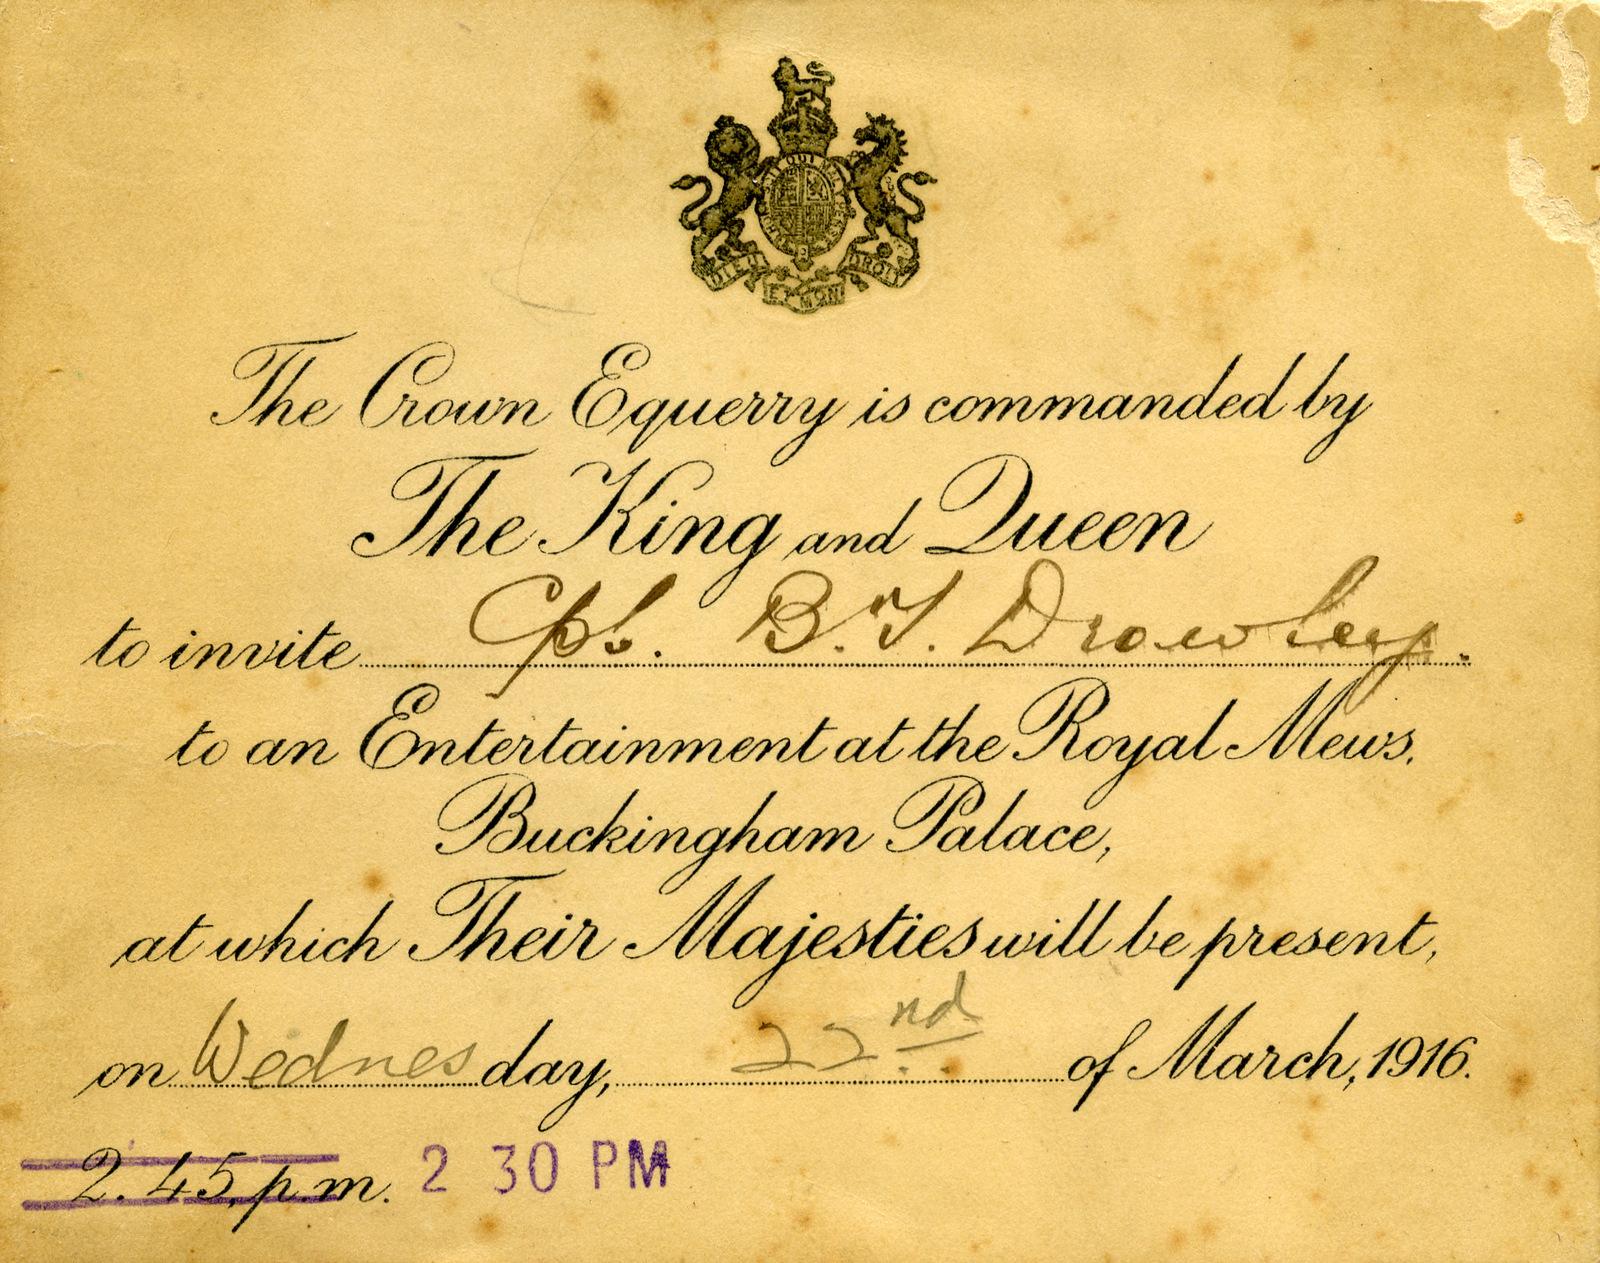 QUI MAL
DIEU ET MON DROIT
The Crown Equerry is commanded by
The King and Queen
to invite Cpl. B.T. Drowley.
to an Entertainment at the Royal Mews,
Buckingham Palace,
at which Their Majesties will be present,
on Wednesday, 22nd of March, 1916.
2.45, p.m. 2 30 PM